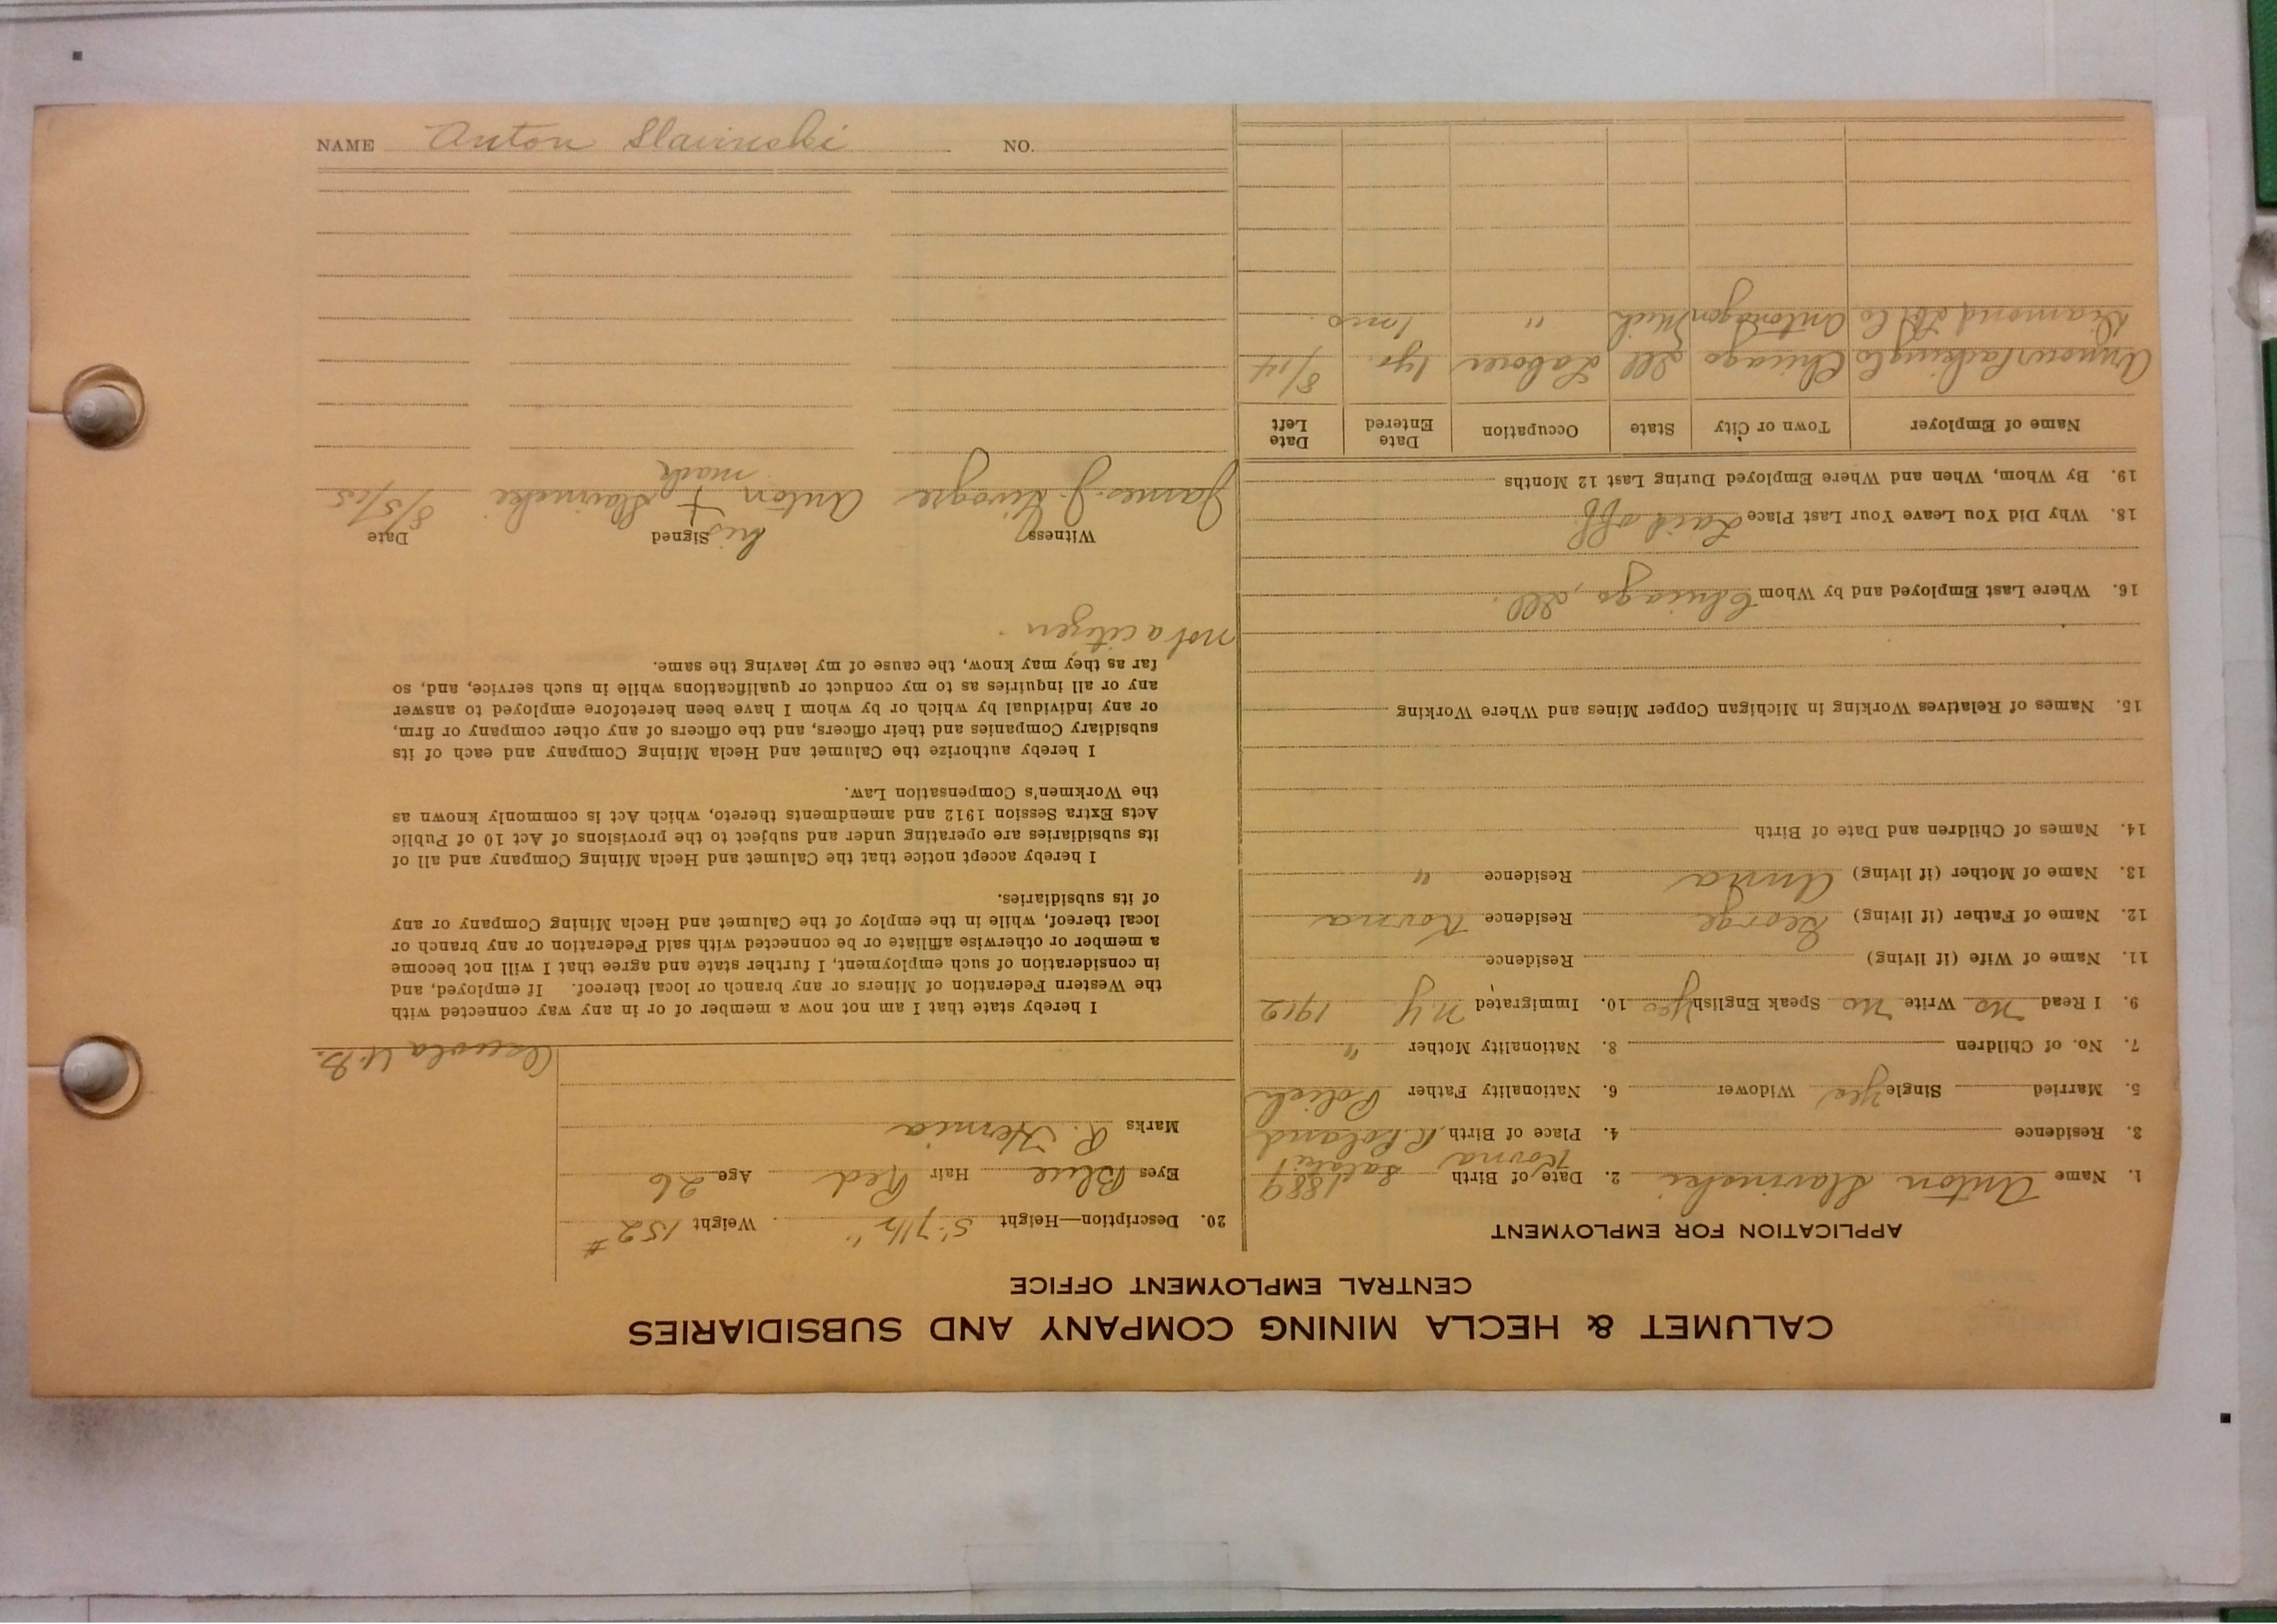 CALUMET & HECLA MINING COMPANY AND SUBSIDIARIES
CENTRAL EMPLOYMENT OFFICE
APPLICATION FOR EMPLOYMENT
1. Name Anton Slavinski 2. Date of Birth 1889
3. Residence 4. Place of Birth Kovna R. Poland
5. Married Single Yes Widower 6. Nationality Father Polish
7. No. of Children 8. Nationality Mother "
9. I Read No Write No Speak English Yes 10. Immigrated N.Y. 1912
11. Name of Wife (if living) Residence
12. Name of Father (if living) George Residence Kovna
13. Name of Mother (if living) Anna Residence "
14. Names of Children and Date of Birth
15. Names of Relatives Working in Michigan Copper Mines and Where Working
16. Where Last Employed and by Whom Chicago, Ill.
18. Why Did You Leave Your Last Place Laid off.
19. By Whom, When and Where Employed During Last 12 Months
Name of Employer Town or City State Occupation Date Entered Date Left
Armour Packing Co Chicago Ill Laborer 1 yr. 8/14
Diamond Co Ontonagon Mich "
20. Description—Height 5' 7 1/2" Weight 152 #
Eyes Blue Hair Red Age 26
Marks R. Hernia
Osceola
I hereby state that I am not now a member of or in any way connected with
the Western Federation of Miners or any branch or local thereof. If employed, and
in consideration of such employment, I further state and agree that I will not become
a member or otherwise affiliate or be connected with said Federation or any branch or
local thereof, while in the employ of the Calumet and Hecla Mining Company or any
of its subsidiaries.
I hereby accept notice that the Calumet and Hecla Mining Company and all of
its subsidiaries are operating under and subject to the provisions of Act 10 of Public
Acts Extra Session 1912 and amendments thereto, which Act is commonly known as
the Workmen's Compensation Law.
I hereby authorize the Calumet and Hecla Mining Company and each of its
subsidiary Companies and their officers, and the officers of any other company or firm,
or any individual by which or by whom I have been heretofore employed to answer
any or all inquiries as to my conduct or qualifications while in such service, and, so
far as they may know, the cause of my leaving the same.
not a citizen.
Witness Signed Date
his
James J. Anton + Slavinski 8/5/15
mark
NAME Anton Slavinski NO.